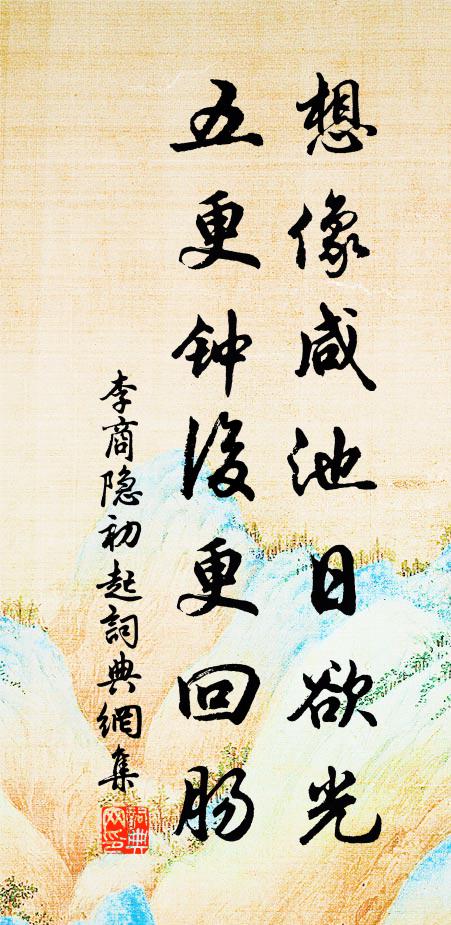 想像咸池日欲光
五更钟後更回肠
李商隐初起詞典網集
詞典
网印